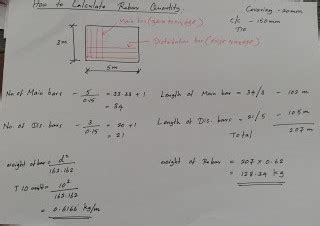 How to Calculate Rebars Quantity.
Covering - 20mm
c/c - 150mm
T10
Main bar (
Distribution bar (
3m
5m
No of Main bars - 5/0.15 = 33.33 + 1
= 34
Length of Main bar = 34/3 - 102 m
No of Dis. bars - 3/0.15 = 20 + 1
= 21
Length of Dis. bars = 21/5 - 105m
Total 207 m
weight of bar = d²/162.162
T 10 = 10²/162.162
= 0.6166 kg/m
weight of Rebar = 207 x 0.62
= 128.34 kg